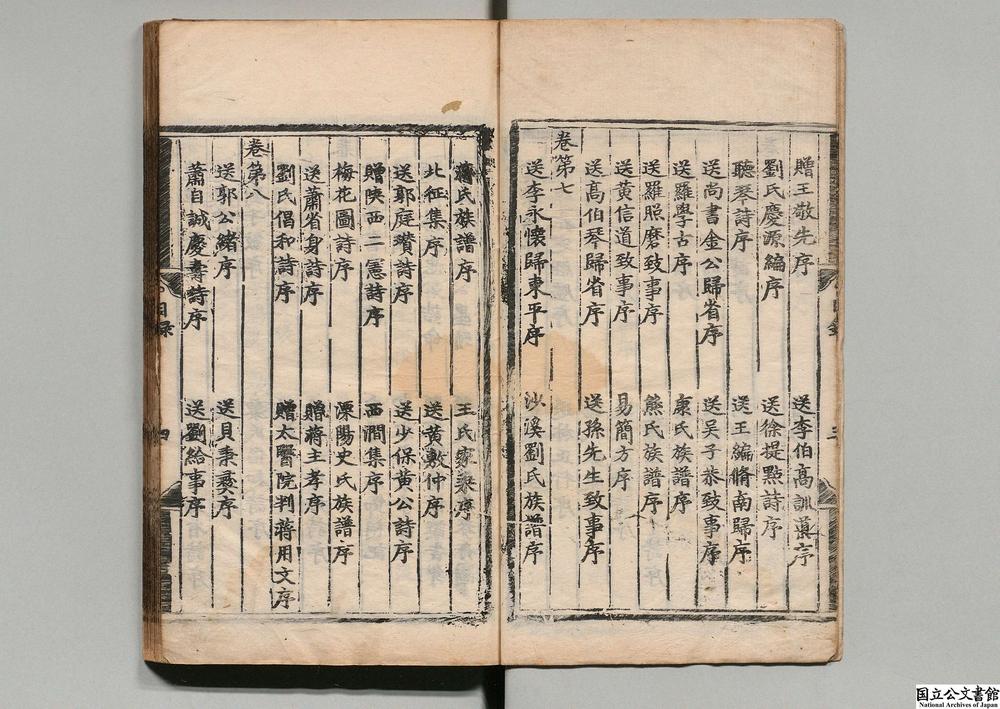 贈王敬先序　送李伯高訓導序
劉氏慶源編序　送徐提點詩序
聽琴詩序　送王編脩南歸序
送尚書金公歸省序　送吴子恭致事序
送羅學古序　康氏族譜序
送羅照磨致事序　熊氏族譜序
送黄信道致事序　易簡方序
送高伯琴歸省序　送孫先生致事序
卷第七
送李永懷歸東平序　沙溪劉氏族譜序
蕭氏族譜序　王氏家乘序
北征集序　送黄敷仲序
送郭庭瓚詩序　送少保黄公詩序
贈陕西二憲詩序　西澗集序
梅花圖詩序　溧陽史氏族譜序
送蕭省身詩序　贈蒋主孝序
劉氏倡和詩序　贈太醫院判蒋用文序
卷第八
送郭公緒序　送貝秉彝序
蕭自誠慶壽詩序　送劉給事序
目録
四
国立公文書館
National Archives of Japan